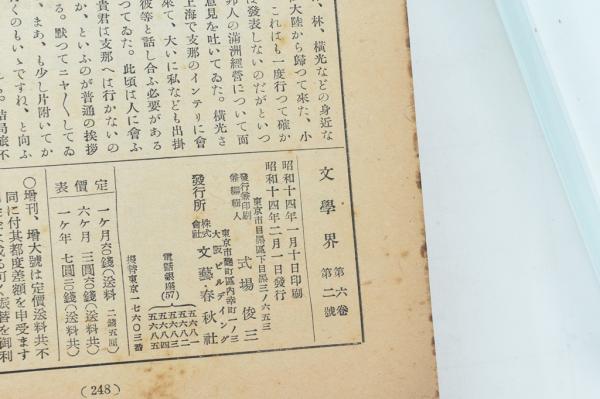 、林、橫光などの身近な
大陸から歸つて來た、小
これはも一度行つて確か
發表しないのだがといつ
邦人の滿洲經營について面
意見を吐いてゐた。橫光さ
上海で支那のインテリに會
來て、大いに私なども出掛
彼等と話し合ふ必要がある
つてゐた。此頃は人に會ふ
貴君は支那へは行かないの
か、といふのが普通の挨拶
る。默つてニヤ〳〵してゐ
、まあ、も少し片附いてか
くのもいゝですね、と向ふ
文學界 第六卷 第二號
昭和十四年一月十日印刷
昭和十四年二月一日發行
東京市目黑區下目黑三ノ六五三
發行兼印刷
兼編輯人 式場俊三
東京市麴町區內幸町一ノ三
大阪ビルデイング
發行所 株式會社 文藝・春秋社
電話銀座(57)
五六八一
五六八二
五六八三
五六八四
五六八五
振替東京一七六〇三番
定價表
一ケ月 六〇錢(送料 二錢五厘)
六ケ月 三圓六〇錢(送料共)
一ケ年 七圓二〇錢(送料共)
〇增刊、增大號は定價送料共不
同に付其都度差額を申受ます
(248)